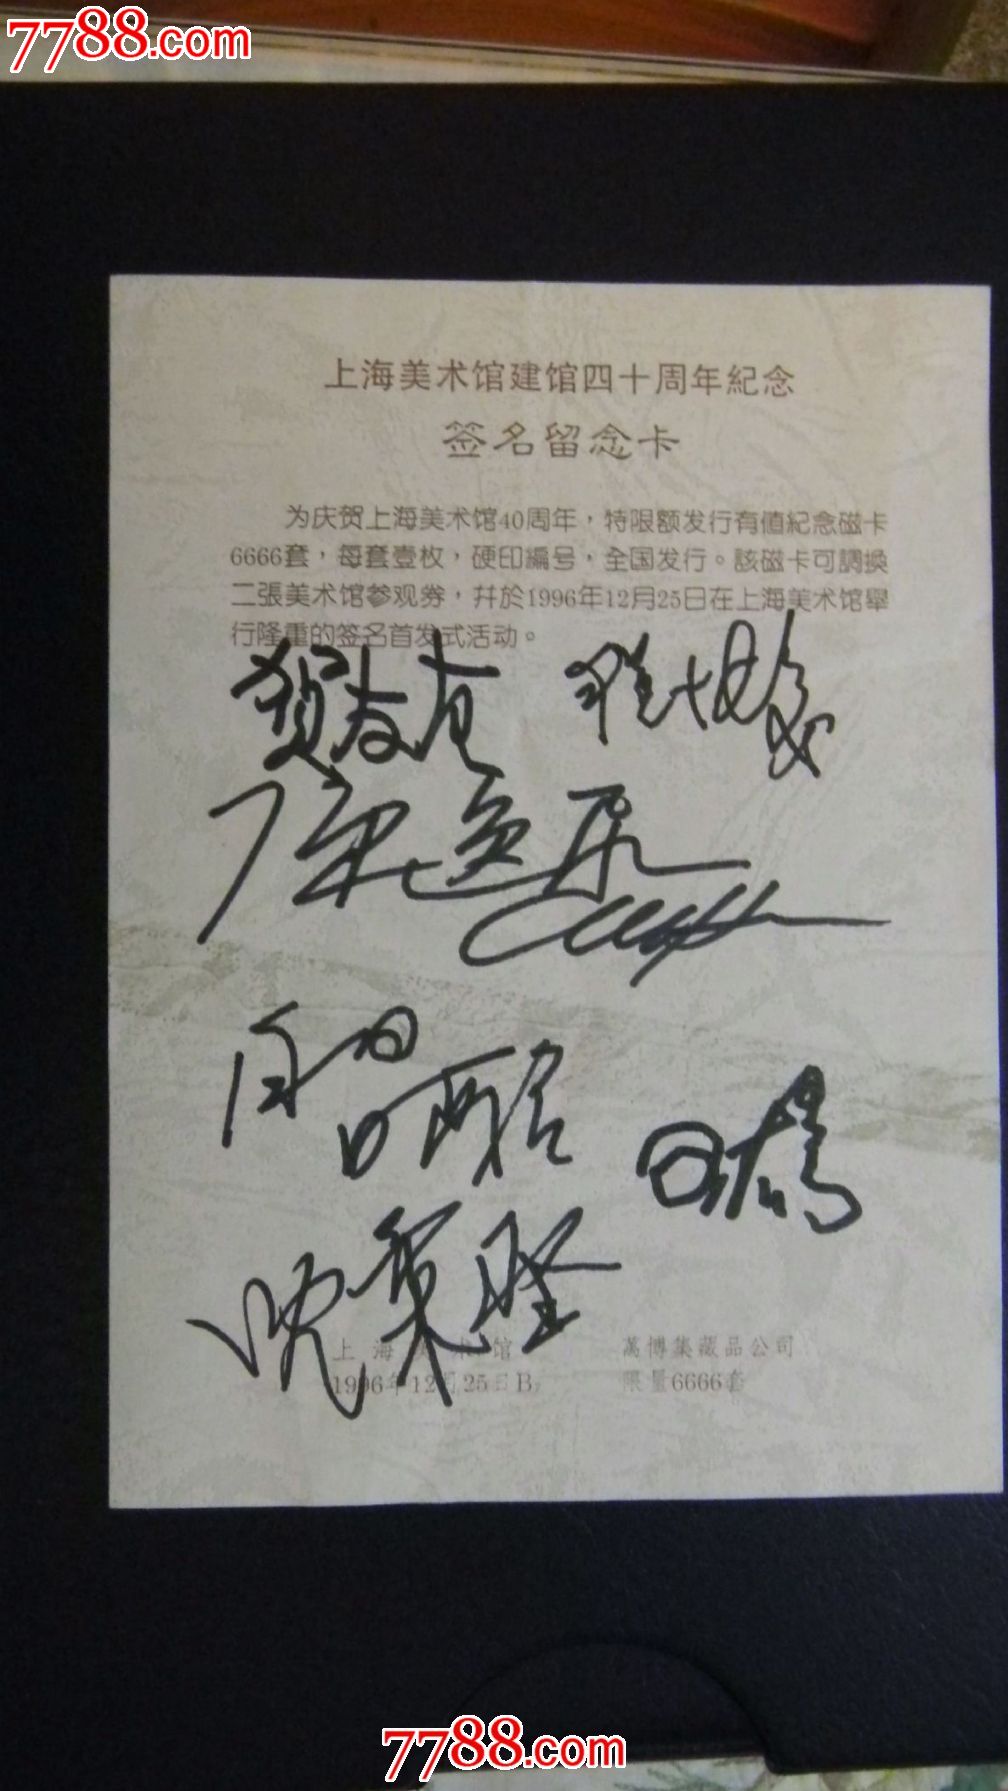 7788.com
上海美术馆建馆四十周年紀念
签名留念卡
为庆贺上海美术馆40周年，特限额发行有值紀念磁卡
6666套，每套壹枚，硬印編号，全国发行。該磁卡可調換
二張美术馆参观券，幷於1996年12月25日在上海美术馆舉
行隆重的签名首发式活动。
贺友直
沈柔坚
上海 术馆 萬博集藏品公司
1996年12月25日 限量6666套
7788.com